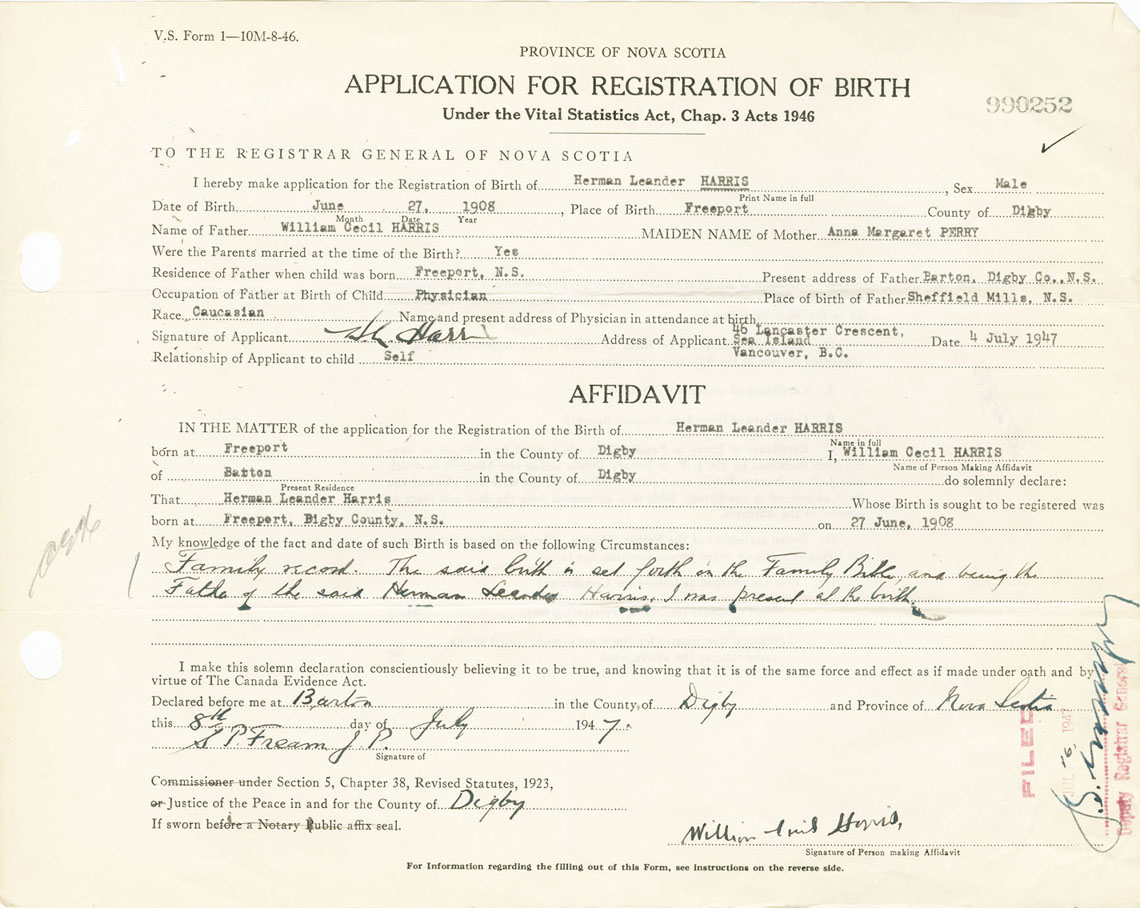 V.S. Form 1—10M-8-46.
PROVINCE OF NOVA SCOTIA
APPLICATION FOR REGISTRATION OF BIRTH
Under the Vital Statistics Act, Chap. 3 Acts 1946
990252
TO THE REGISTRAR GENERAL OF NOVA SCOTIA
I hereby make application for the Registration of Birth of Herman Leander HARRIS, Sex Male
Print Name in full
Date of Birth June 27, 1908, Place of Birth Freeport County of Digby
Month Date Year
Name of Father William Cecil HARRIS MAIDEN NAME of Mother Anna Margaret PERRY
Were the Parents married at the time of the Birth? Yes
Residence of Father when child was born Freeport, N.S. Present address of Father Barton, Digby Co., N.S.
Occupation of Father at Birth of Child Physician Place of birth of Father Sheffield Mills, N.S.
Race Caucasian Name and present address of Physician in attendance at birth
Signature of Applicant HL Harris Address of Applicant 46 Lancaster Crescent, Sea Island Vancouver, B.C. Date 4 July 1947
Relationship of Applicant to child Self
AFFIDAVIT
IN THE MATTER of the application for the Registration of the Birth of Herman Leander HARRIS
Name in full
born at Freeport in the County of Digby I, William Cecil HARRIS
Name of Person Making Affidavit
of Barton in the County of Digby do solemnly declare:
Present Residence
That Herman Leander Harris Whose Birth is sought to be registered was
born at Freeport, Digby County, N.S. on 27 June, 1908
My knowledge of the fact and date of such Birth is based on the following Circumstances:
Family record. The said birth is set forth in the Family Bible, and being the
Father of the said Herman Leander Harris, I was present at the birth.
I make this solemn declaration conscientiously believing it to be true, and knowing that it is of the same force and effect as if made under oath and by
virtue of The Canada Evidence Act.
Declared before me at Barton in the County of Digby and Province of Nova Scotia
this 8th day of July 1947.
S P Fream J.P.
Signature of
Commissioner under Section 5, Chapter 38, Revised Statutes, 1923,
or Justice of the Peace in and for the County of Digby
If sworn before a Notary Public affix seal.
William Cecil Harris,
Signature of Person making Affidavit
For Information regarding the filling out of this Form, see instructions on the reverse side.
FILED
JUL 16 1947
Deputy Registrar General